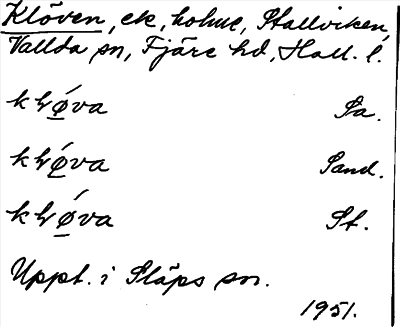 Klöven, ek, holme, Stallviken,
Vallda sn, Fjäre hd, Hall. l.
klǿ̱va Sa.
klǿ̱va Sand.
klǿ̱va St.
Uppt. i Släps sn.
1951.